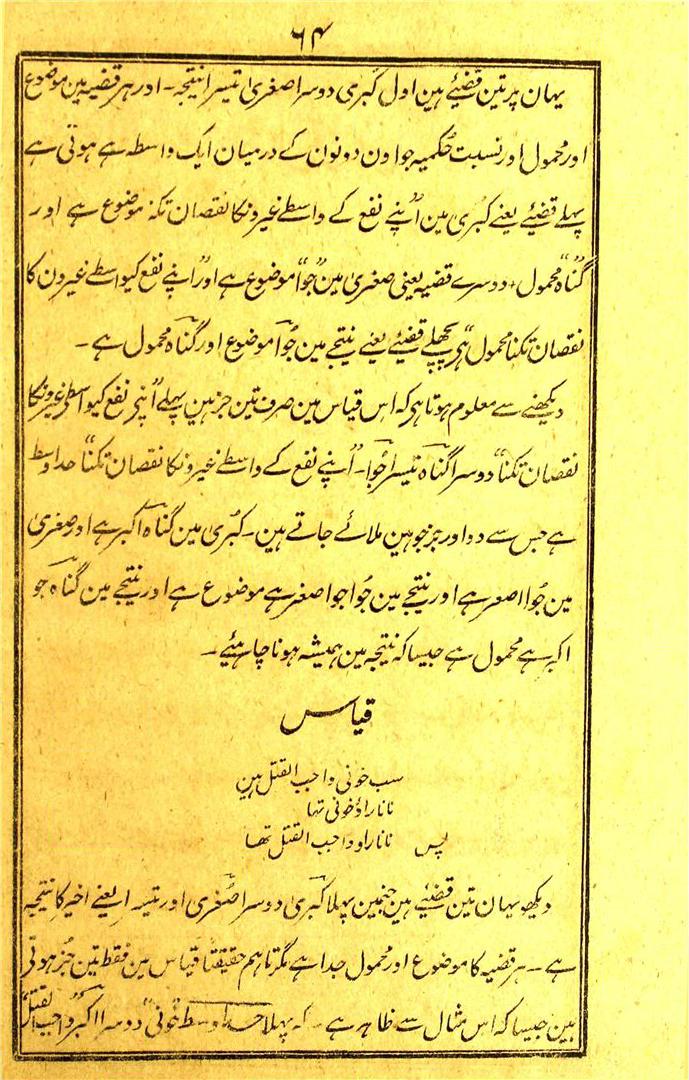 ۶۴
یہان پر تین قضیئے ہین اول کبری دوسرا صغریٰ تیسرا نتیجہ - اور ہر قضیہ مین موضوع
اور محمول اور نسبت حُکمیہ جو اون دونون کے درمیان ایک واسطہ ہے ہوتی ہے
پہلے قضیئے یعنے کبریٰ مین اپنے نفع کے واسطے غیرونکا نقصان تکنا موضوع ہے اور
گناہ محمول، دوسرے قضیہ یعنی صغریٰ مین جُوا موضوع ہے اور اپنے نفع کیواسطے غیرون کا
نقصان تکنا محمول ہی پچھلے قضیئے یعنے نتیجے مین جُوا موضوع اور گناہ محمول ہے -
دیکھنے سے معلوم ہوتا ہی کہ اس قیاس مین صرف تین جز ہین پہلے اپنی نفع کیواسطی غیرونکا
نقصان تکنا دوسرا گناہ تیسرا جُوا - اُپنے نفع کے واسطے غیرونکا نقصان تکنا حد اوسط
ہے جس سے دو اور جز جو ہین ملائے جاتے ہین - کبریٰ مین گناہ اکبر ہے اور صغریٰ
مین جُوا اصغر ہے اور نتیجے مین جُوا جو اصغر ہے موضوع ہے اور نتیجے مین گناہ جو
اکبر ہے محمول ہے جیسا کہ نتیجہ مین ہمیشہ ہونا چاہیئے -
قیاس
سب خونی واجب القتل ہین
نانا راؤ خونی تہا
پس نانا راو واجب القتل تھا
دیکھو یہان تین قضیئے ہین جنمین پہلا کبریٰ دوسرا صغری اور تیسرا یعنے اخیر کا نتیجہ
ہے - ہر قضیہ کا موضوع اور محمول جدا ہے مگر تاہم حقیقتاً قیاس مین فقط تین جُز ہوتی
ہین جیسا کہ اس مثال سے ظاہر ہے - کہ پہلا حد اوسط خونی دوسرا اکبر واجب القتل